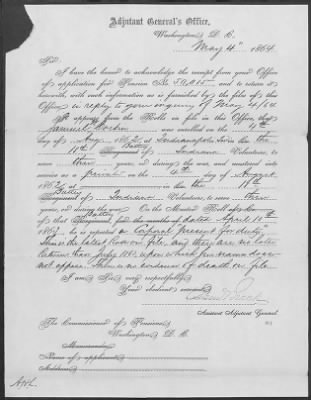 Adjutant General's Office,
Washington, D. C.
May 4th 1864.
Sir:
I have the honor to acknowledge the receipt from your Office
of application for Pension No. and to return it
herewith, with such information as is furnished by the files of this
Office in reply to your inquiry of May 4/64
It appears from the Rolls on file in this Office, that
Samuel was enrolled on the 4th
day of Aug. 1862, at Indianapolis Ind in the
11th Battery Indiana Volunteers, to
serve three years, or during the war, and mustered into
service as a private on the 4th day of August
1862, at in the 11th
Battery Regiment of Indiana Volunteers, to serve three
years, or during the war. On the Muster Roll
of that Battery for the months of dated April 10th
1863, he is reported a Corporal "present for duty."
This is the latest Roll on file, and there are no later
Returns than July 1863, upon which his name does
not appear. There is no evidence of death on file.
I am, Sir, very respectfully,
Your obedient servant,
Assistant Adjutant General.
The Commissioner of Pensions,
Washington, D. C.
Memoranda:
Name of applicant,
Address,